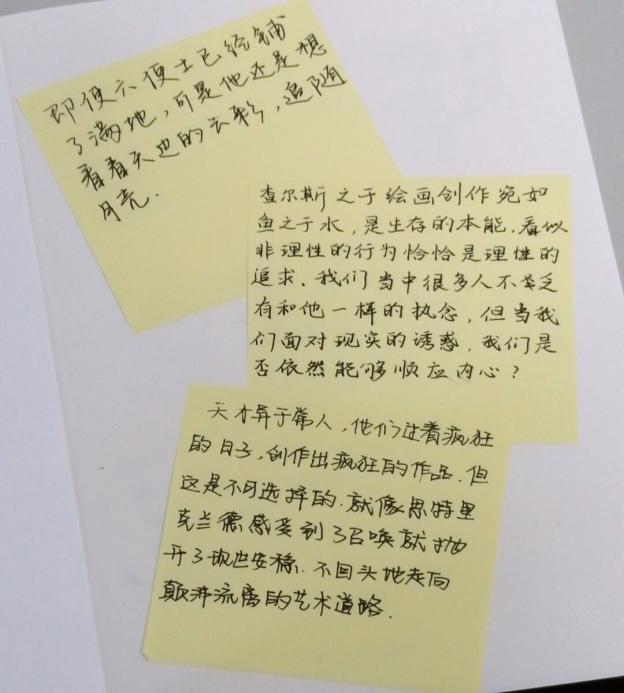 即使六便士已经铺
了满地，可是他还是想
看看天边的云彩，追随
月亮.
查尔斯之于绘画创作宛如
鱼之于水，是生存的本能.看似
非理性的行为恰恰是理性的
追求.我们当中很多人不差乏
有和他一样的执念，但当我
们面对现实的诱惑，我们是
否依然能够顺应内心？
天才异于常人，他们过着疯狂
的日子，创作出疯狂的作品.但
这是不可选择的.就像思特里
克兰德感受到了召唤就抛
开了现世安稳.不回头地走向
颠沛流离的艺术道路.